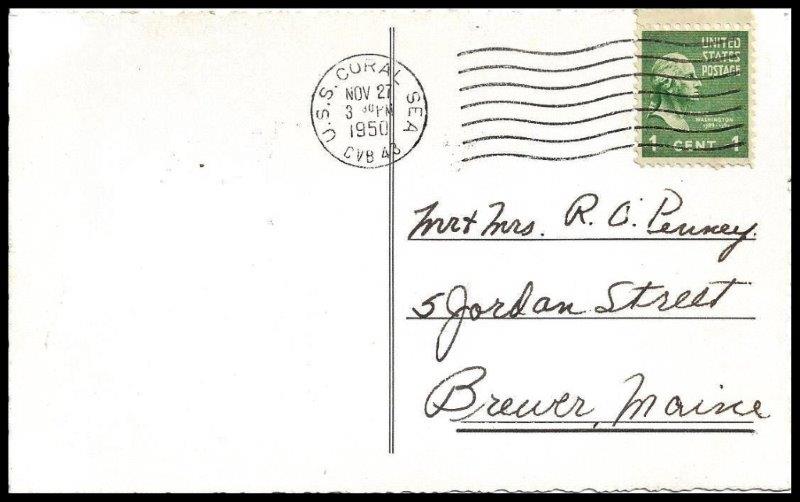 U.S.S. CORAL SEA
NOV 27
3 30 PM
1950
CVB 43
UNITED
STATES
POSTAGE
WASHINGTON
1 CENT 1
Mr + Mrs. R. C. Penney.
5 Jordan Street
Brewer, Maine